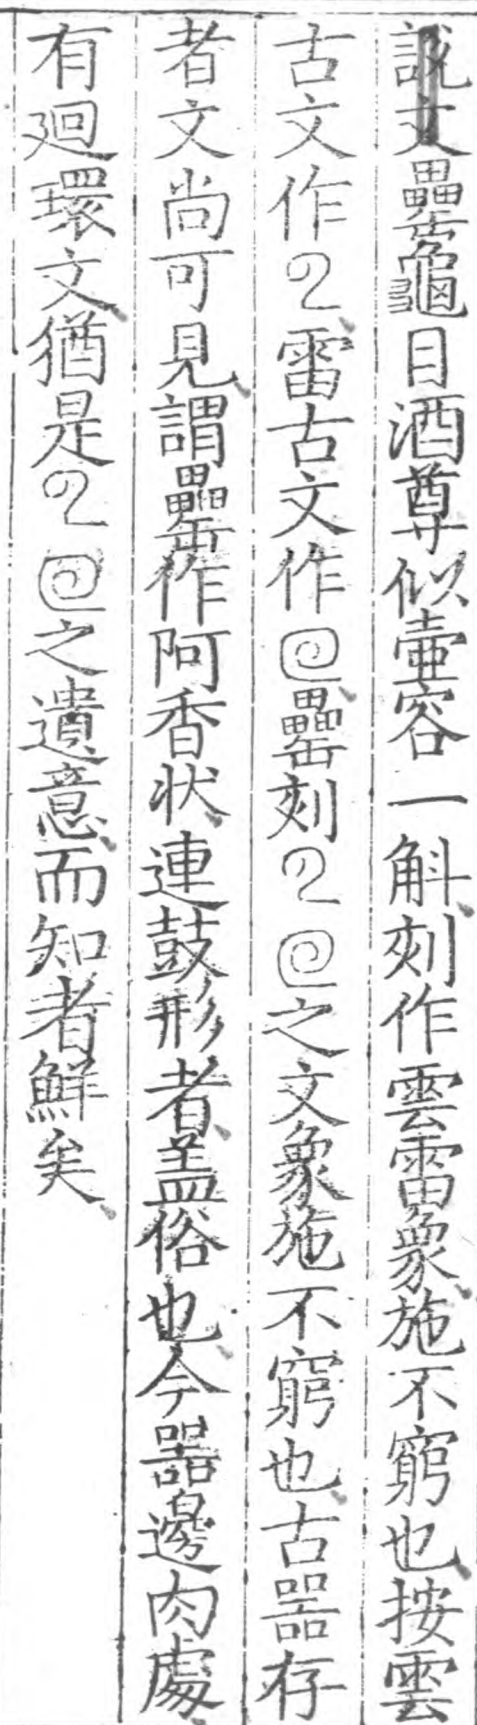 說文罍龜目酒尊似壷容一斛刻作雲雷象施不窮也按雲
古文作雷古文作罍刻之文象施不窮也古器存
者文尚可見謂罍作阿香状連鼓形者盖俗也今器邊肉處
有廻環文猶是之遺意而知者鮮矣